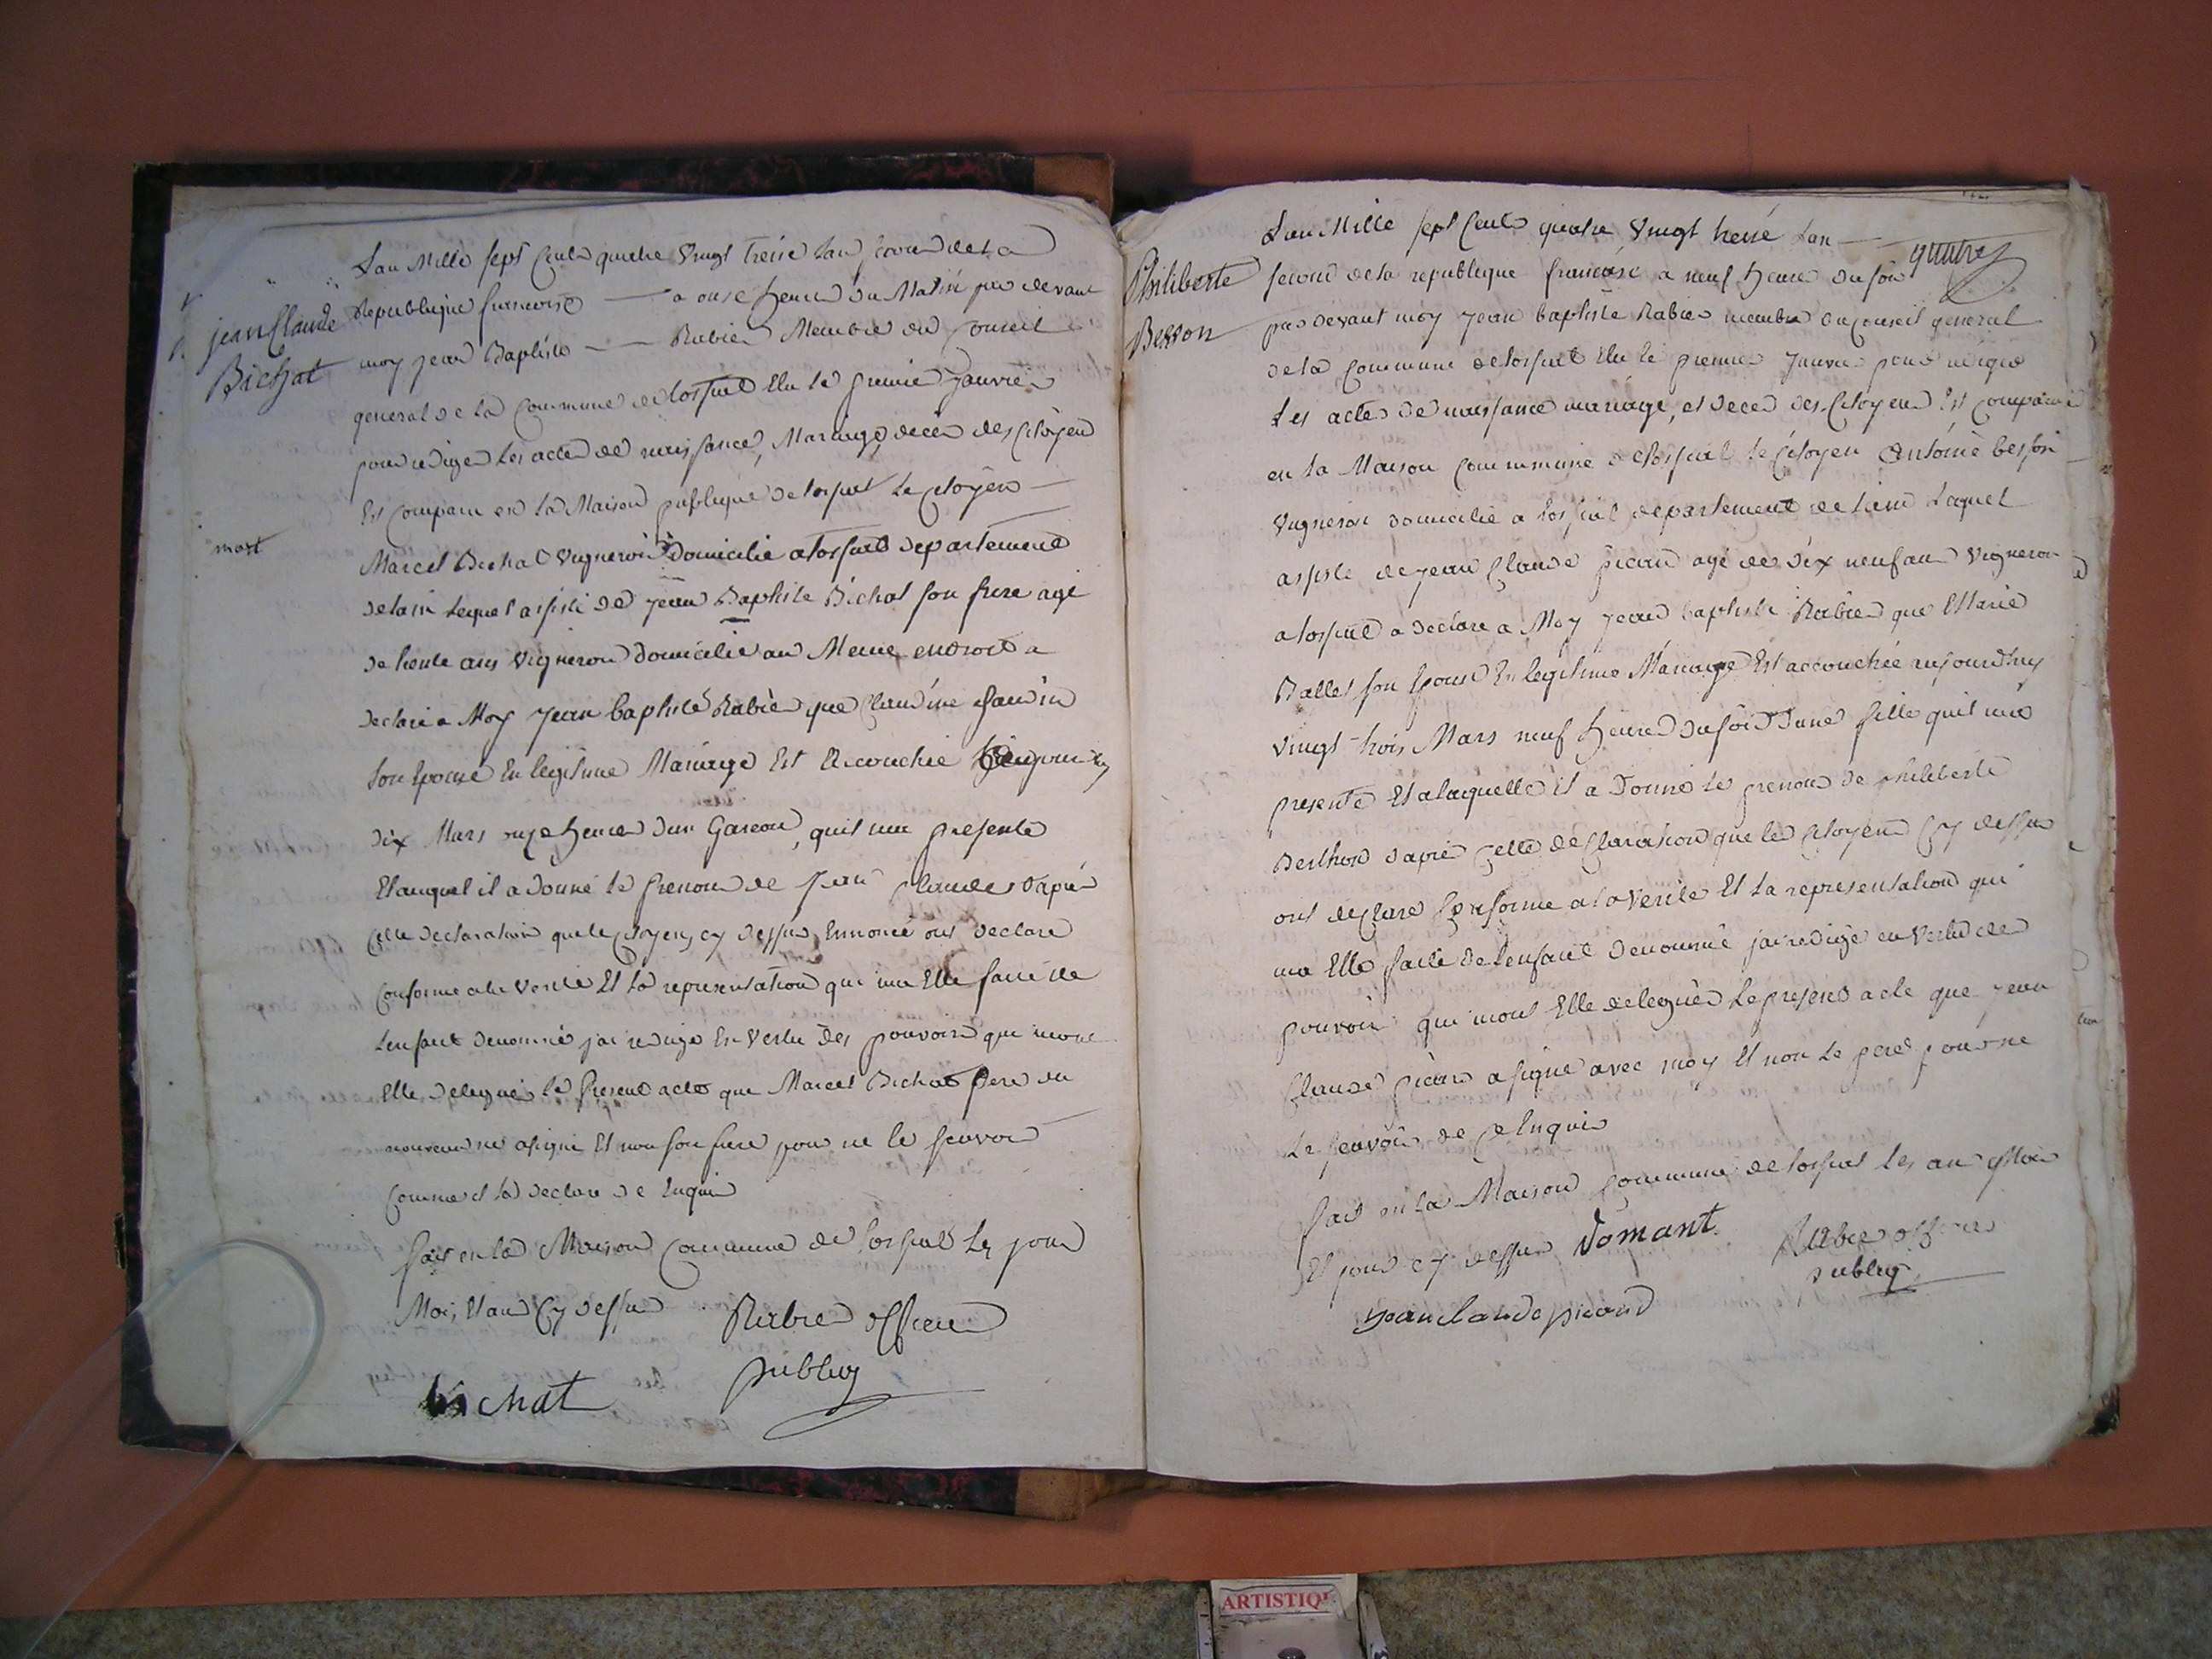 jean Claude
Bichat
mort
Lan Mille sept Cents quatre Vingt treise Lan second de La
Republique francoise — a onse heures du Matin par devant
moy jean Baptiste — Rabier Membre du Conseil
general de La Commune de Elu le premier janvier
pour rediger Les actes de naissance, Mariage, deces des Citoyens
Est Comparu en La Maison publique de Le Citoyen —
Marcel Bichat Vigneron Domicilié departement
de lain Lequel assisté de jean Baptiste Bichat son frere agé
de trente ans Vigneron domicilié au Meme endroit a
declaré a Moy jean baptiste Rabier que Claudine
son Epouse En legitime Mariage Est Accouchée
dix Mars onze heures dun Garcon, quil ma presenté
Et auquel il a donné le prenom de jean claude daprès
Cette declaration que le Citoyens cy dessus Ennoncé ont declaré
Conforme a la Verité Et la representation qui ma Ete faite de
Lenfant denommé jai redigé En Vertu des pouvoirs qui mont
Ete delegués le present acte que Marcel Bichat pere du
nouveau né a signé Et non son frere pour ne le scavoir
Comme il la declaré de Enquis
fait en la Maison Commune de Les jour
Moi, Et an Cy dessus Rabier officier
publiq
bichat
quatre
Philiberte
Besson
Lan Mille sept Cents quatre Vingt treisé Lan —
second de la republique francoise a neuf heure du soir
par devant moy jean baptiste Rabier membre du Conseil general
de la Commune de Elu le premier janvier pour rediger
Les actes de naissance mariage, et deces des Citoyens Est Comparu
en la Maison Commune de le Citoyen Antoine besson
Vigneron domicilié a departement de lain Lequel
assisté de jean Claude picard agé de dix neuf ans Vigneron
a a declaré a Moy jean baptiste Rabier que Marie
Ballet son Epouse En legitime Mariage Est accouchée aujourdhuy
Vingt trois Mars neuf heures du soir dune fille quil ma
presenté Et a laquelle il a donné le prenom de philiberte
daprès Cette declaration que les Citoyens Cy dessus
ont declaré Conforme a la Verité Et la representation qui
ma Ete faite de lenfant denommé jai redigé en Vertu des
pouvoirs qui mont Ete delegués le present acte que jean
Claude picard a signé avec moy Et non le pere pour ne
Le scavoir de ce Enquis
fait en la Maison Commune de les an Mois
Et jour cy dessus Vomant. Rabier officier
publiq
jean claude picard
ARTISTIQ